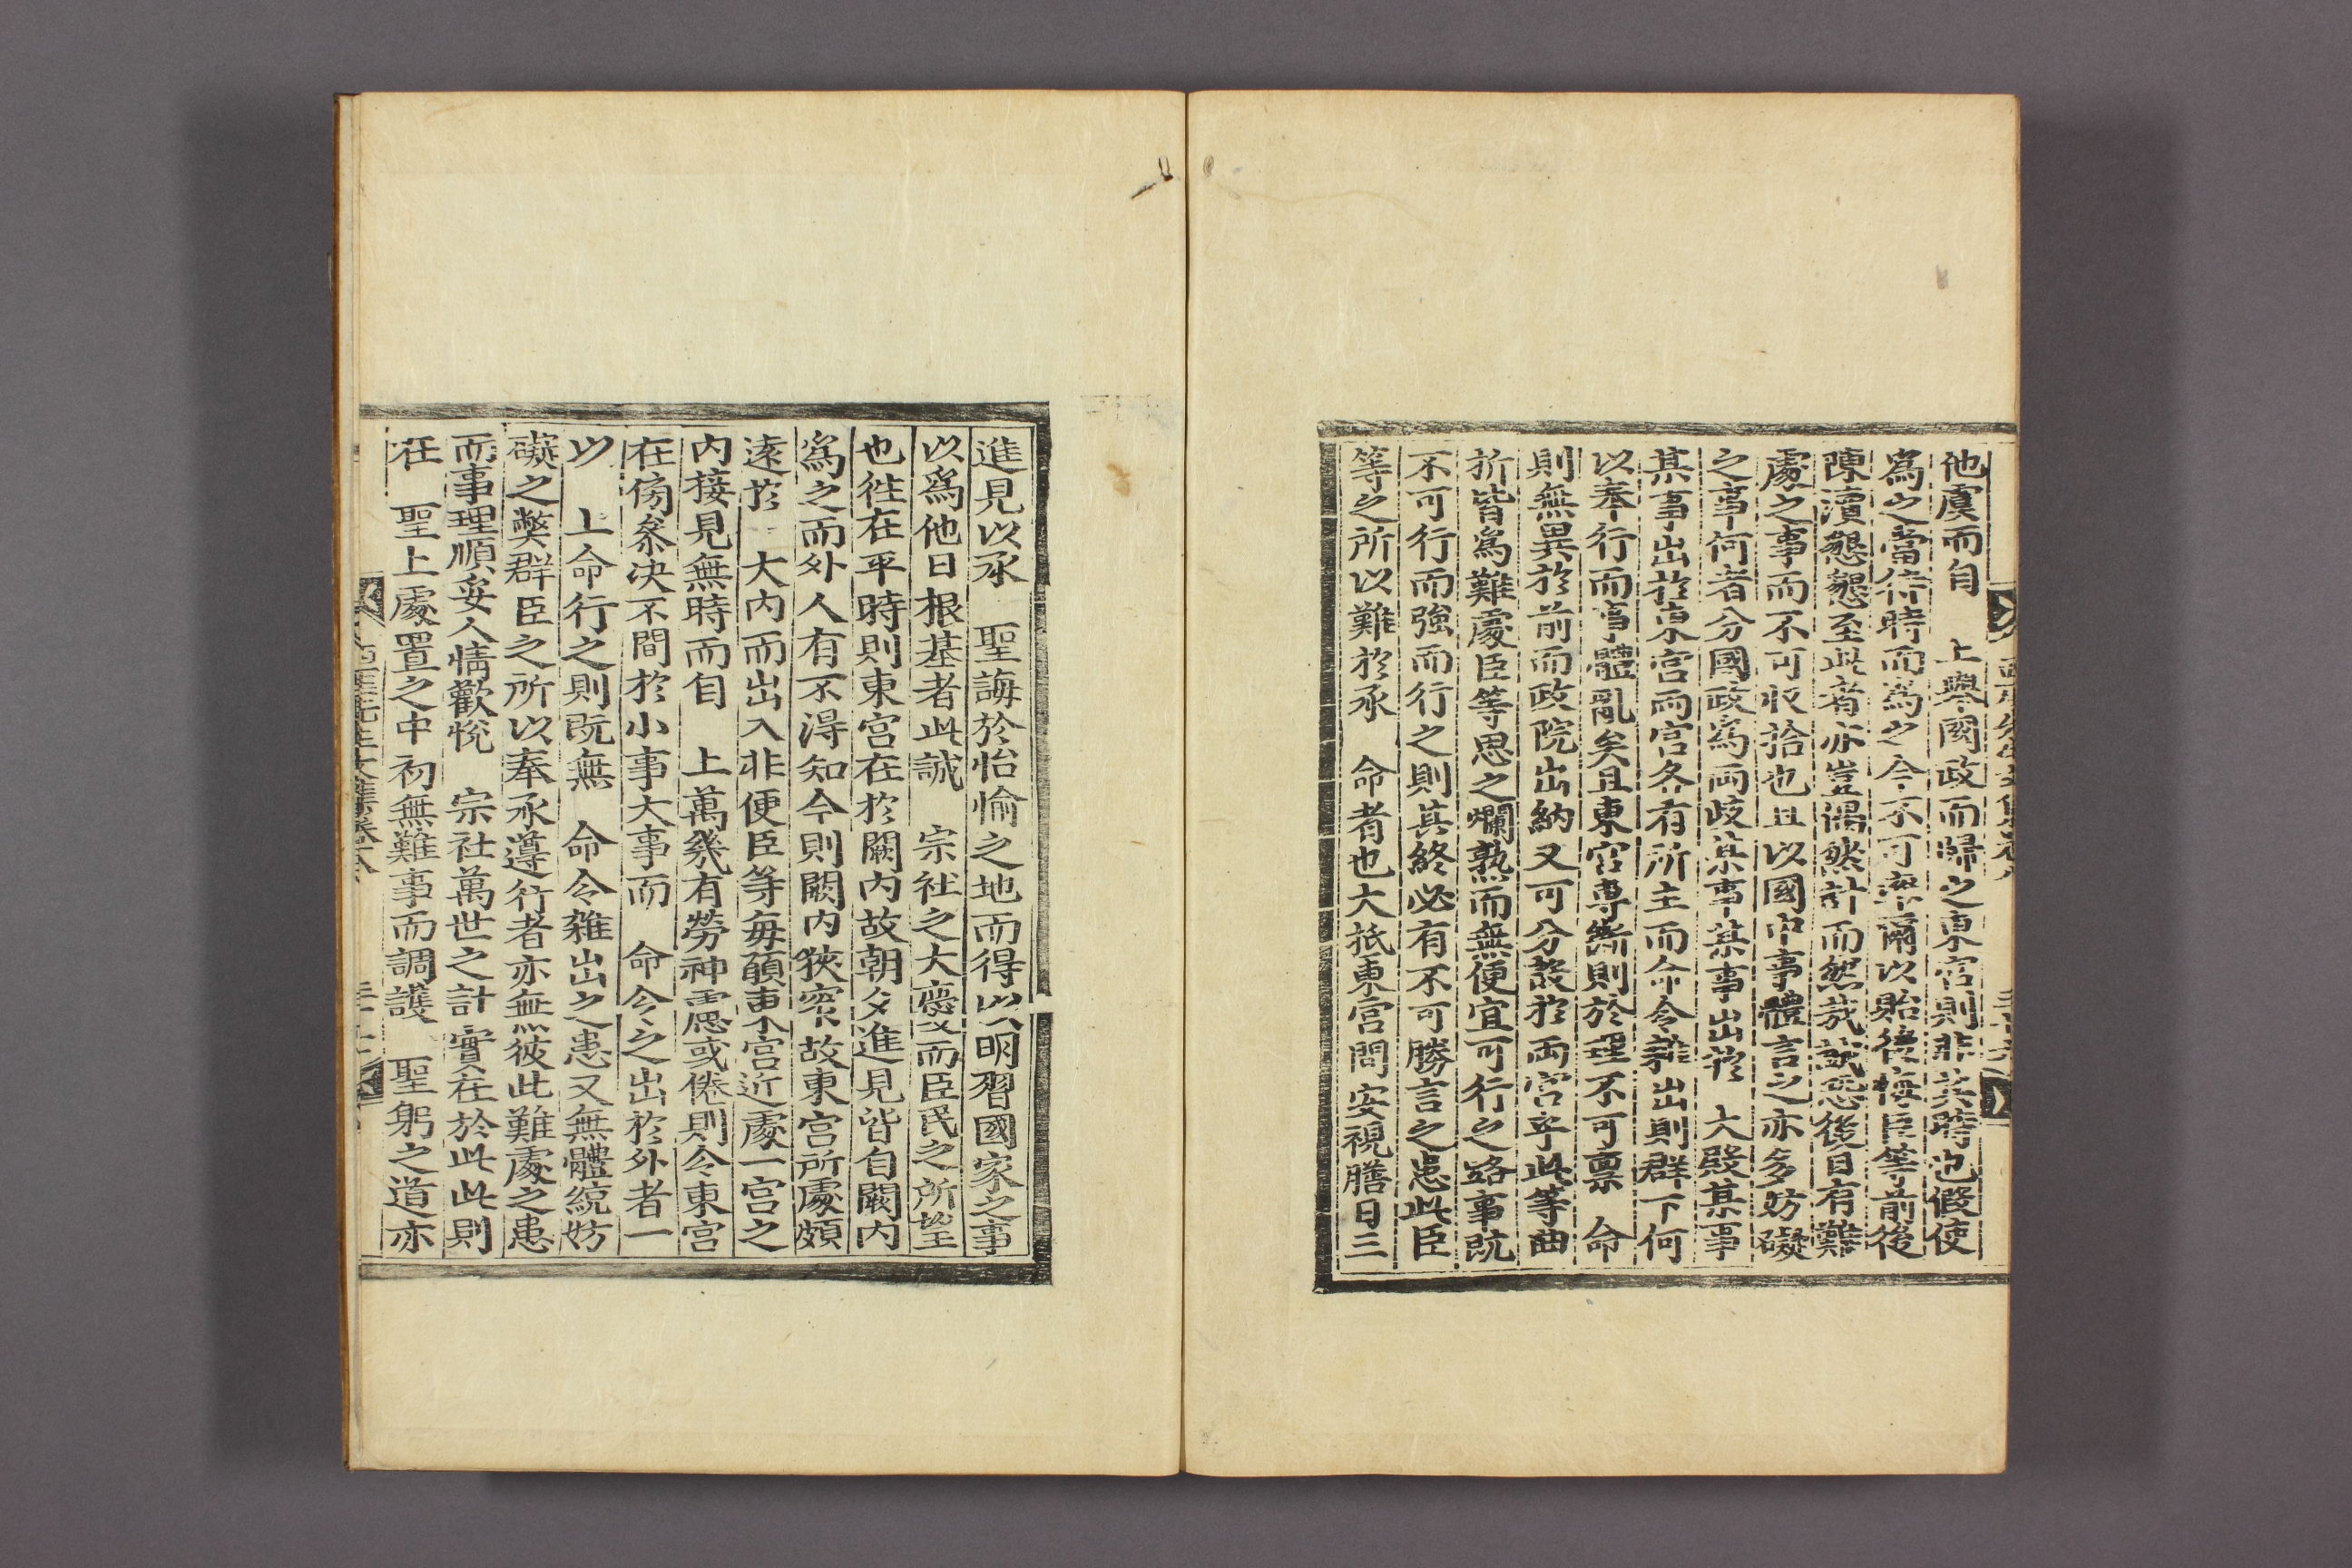 他虞而自 上擧國政而歸之東宮則非其時也假使
爲之當待時而爲之今不可率爾以貽後悔臣等前後
陳瀆懇懇至此者亦豈偶然計而然哉誠恐後日有難
處之事而不可收拾也且以國中事體言之亦多妨礙
之事何者分國政爲兩歧某事某事出於 大殿某事
某事出於東宮兩宮各有所主而命令雜出則群下何
以奉行而事體亂矣且東宮專斷則於理不可稟 命
則無異於前而政院出納又可分設於兩宮乎此等曲
折皆爲難處臣等思之爛熟而無便宜可行之路事旣
不可行而強而行之則其終必有不可勝言之患此臣
等之所以難於承 命者也大抵東宮問安視膳日三
進見以承 聖誨於怡愉之地而得以明習國家之事
以爲他日根基者此誠 宗社之大慶而臣民之所望
也徃在平時則東宮在於闕內故朝夕進見皆自闕內
爲之而外人有不得知今則闕內狹窄故東宮所處頗
遠於 大內而出入非便臣等每願東宮近處一宮之
內接見無時而自 上萬幾有勞神思或倦則令東宮
在傍叅決不間於小事大事而 命令之出於外者一
以 上命行之則旣無 命令雜出之患又無體統妨
礙之獘群臣之所以奉承遵行者亦無彼此難處之患
而事理順妥人情歡悅 宗社萬世之計實在於此此則
在 聖上處置之中初無難事而調護 聖躬之道亦
西厓先生文集卷之八